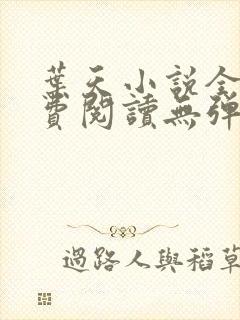 葉天小說全
費閱讀無彈
過路人與稻草